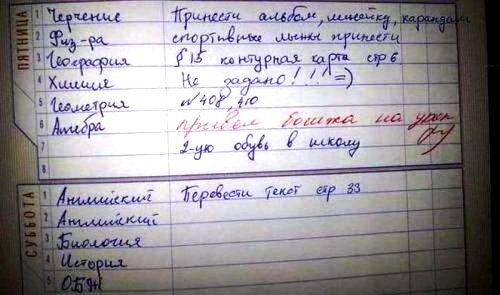 ПЯТНИЦА
1 Черчение Принести альбом, линейку, карандаш
2 Физ-ра спортивные лыжи принести
3 География § 15 контурная карта стр 6
4 Химия Не задано!!! =)
5 Геометрия № 408, 410
6 Алгебра пришёл бошка на урок
7 2-ую обувь в школу
8
СУББОТА
1 Английский Перевести текст стр 33
2 Английский
3 Биология
4 История
5 ОБЖ